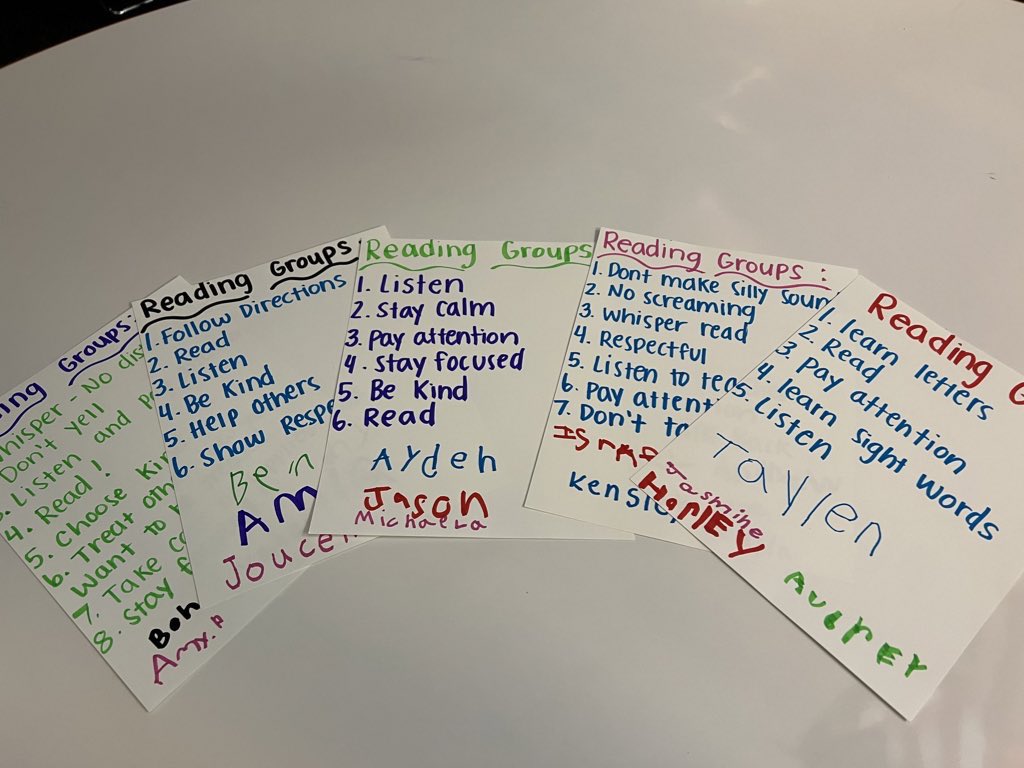 Groups:
Whisper - No dis
Don't yell
Listen and
4. Read!
5. Choose Kin
6. Treat oth
Want to
7. Take
8. Stay
Ben
Amy.
Reading Groups
1. Follow Directions
2. Read
3. Listen
4. Be Kind
5. Help others
6. Show Resp
Be n
Am
Joucel
Reading Groups
1. Listen
2. Stay Calm
3. Pay attention
4. Stay focused
5. Be Kind
6. Read
Ayden
Jason
Michaela
Reading Groups:
1. Dont make Silly Soun
2. No screaming
3. Whisper read
4. Respectful
5. Listen to tea
6. Pay attent
7. Don't ta
Isra
Kensle
Reading G
1. learn letters
2. Read
3. Pay attention
4. learn Sight words
5. Listen
Taylen
Jasmine
Harley
Aubrey